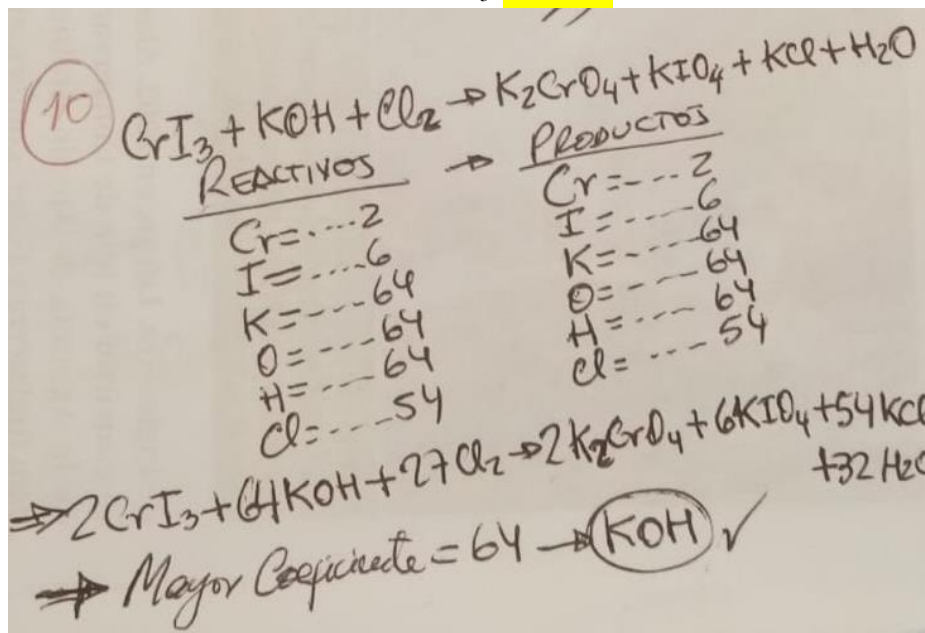 10
CrI₃ + KOH + Cl₂ → K₂CrO₄ + KIO₄ + KCl + H₂O
REACTIVOS → PRODUCTOS
Cr=.....2 Cr=----2
I=.....6 I=-----6
K=----64 K=-----64
O=----64 O=----64
H=----64 H=----64
Cl:....54 Cl=----54
⇒ 2CrI₃ + 64KOH + 27Cl₂ → 2K₂CrO₄ + 6KIO₄ + 54KCl
+32H₂O
⇒ Mayor Coeficiente = 64 → KOH ✓